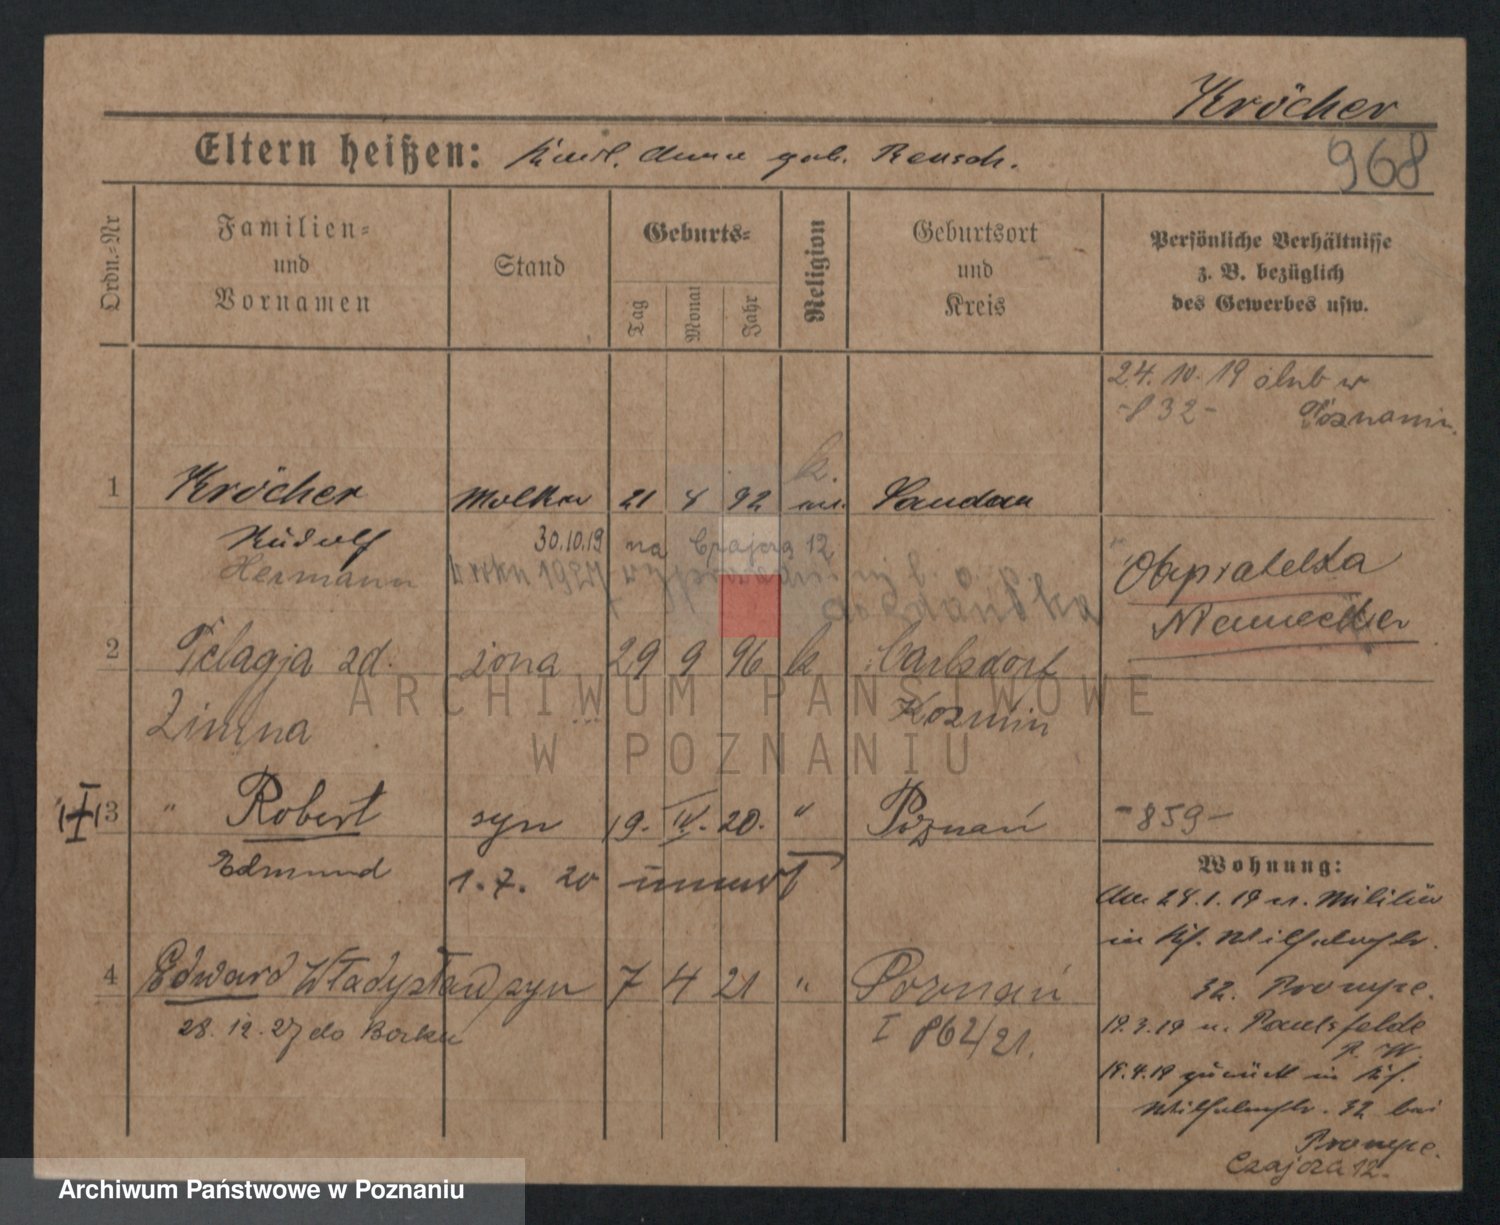 Kröcher
968
Eltern heißen: Karl, Anna geb. Reusch.
Ordn.-Nr
Familien- und Vornamen
Stand
Geburts-
Tag
Monat
Jahr
Religion
Geburtsort und Kreis
Persönliche Verhältnisse z. B. bezüglich des Gewerbes usw.
24. 10. 19 ślub w
-832- Poznaniu.
k.
1 Kröcher 21 8 92 ev. Landau
Rudolf
30.10.19 na Czajcza 12
Hermann
w roku 1927
Obywatelstwo
Niemieckie
2 Pelagja zd. żona 29 9 96 k Carlsdorf
Zimna Koźmin
ARCHIWUM PAŃSTWOWE
W POZNANIU
3 " Robert syn 19. IV. 20. " Poznań -859-
Edmund 1. 7. 20
Wohnung:
Am 24.1.19 v. Militär
in Kf. Wilhelmstr.
4 Edward Władysław syn 7 4 21 " Poznań
32.
28. 12. 27 do Borku
I 862/21.
19.3.19 n. Paulsfelde
P. W.
19.4.19 zurück in Kf.
Wilhelmstr. 32 bei
Czajcza 12.
Archiwum Państwowe w Poznaniu